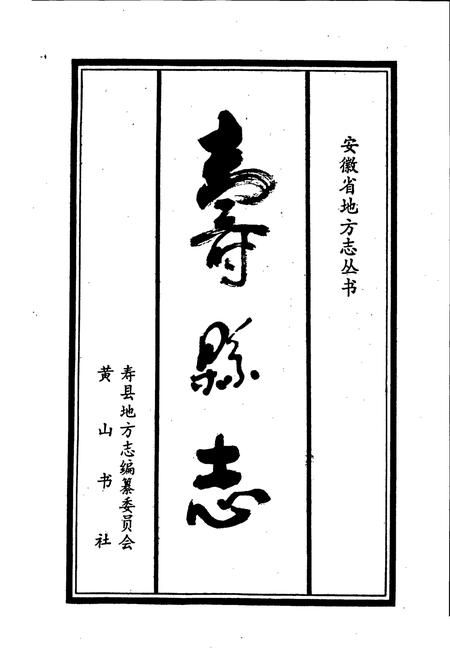 安徽省地方志丛书
壽縣志
寿县地方志编纂委员会
黄山书社